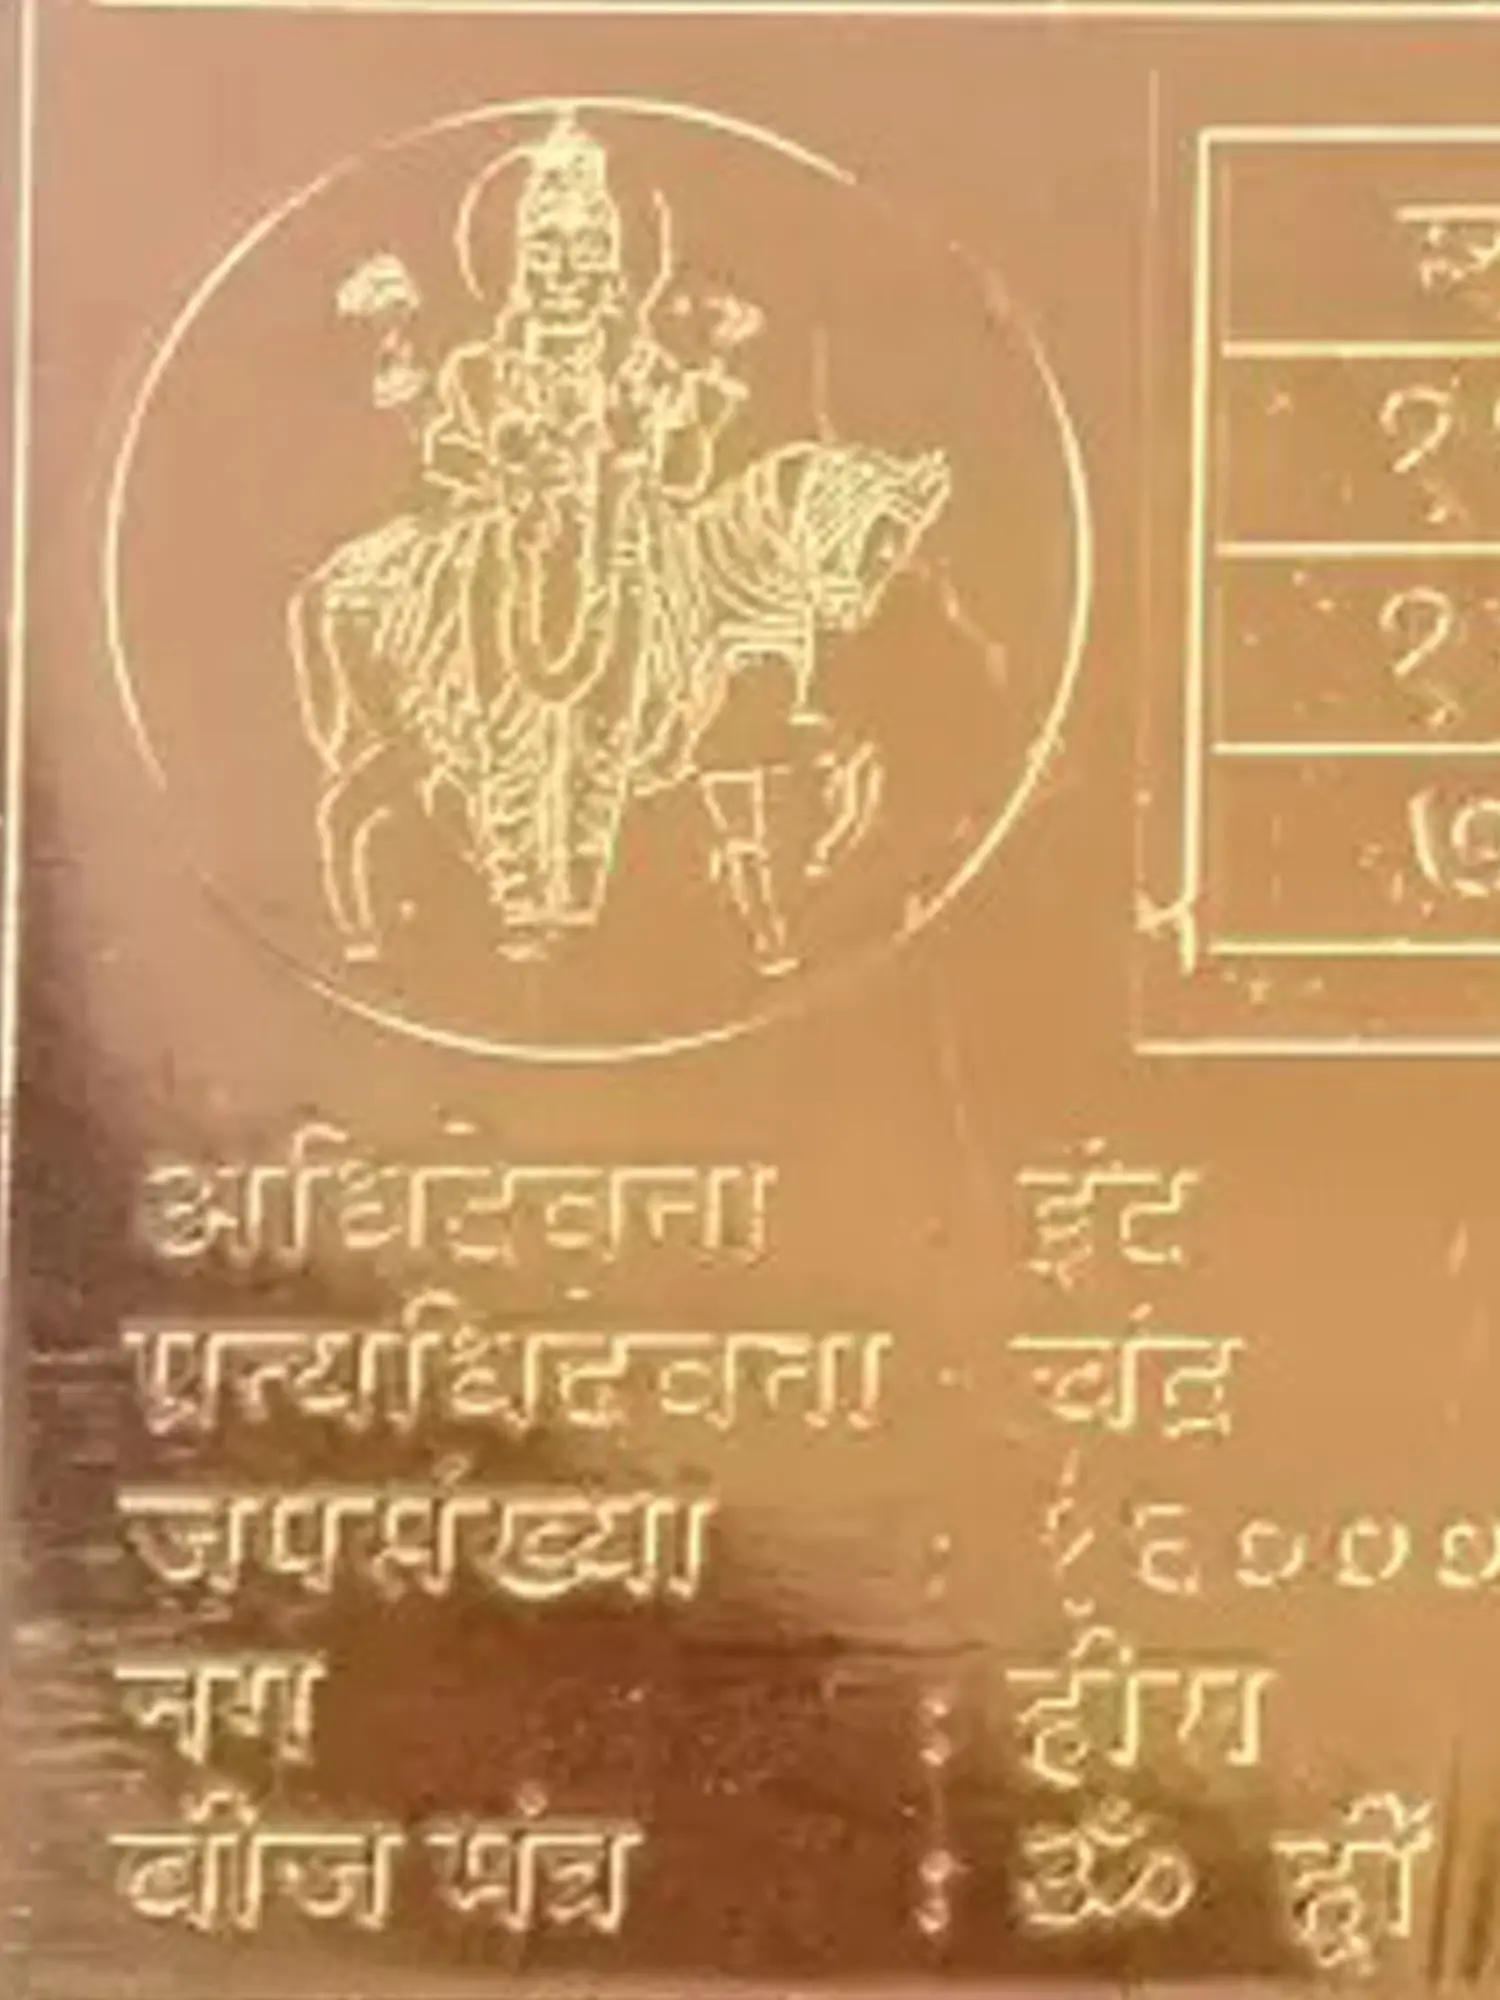 ११
११
अधिदेवता इंद्र
प्रत्यधिदेवता : चंद्र
जपसंख्या : ६०००
नग : हीरा
बीज मंत्र : ॐ ह्रीं